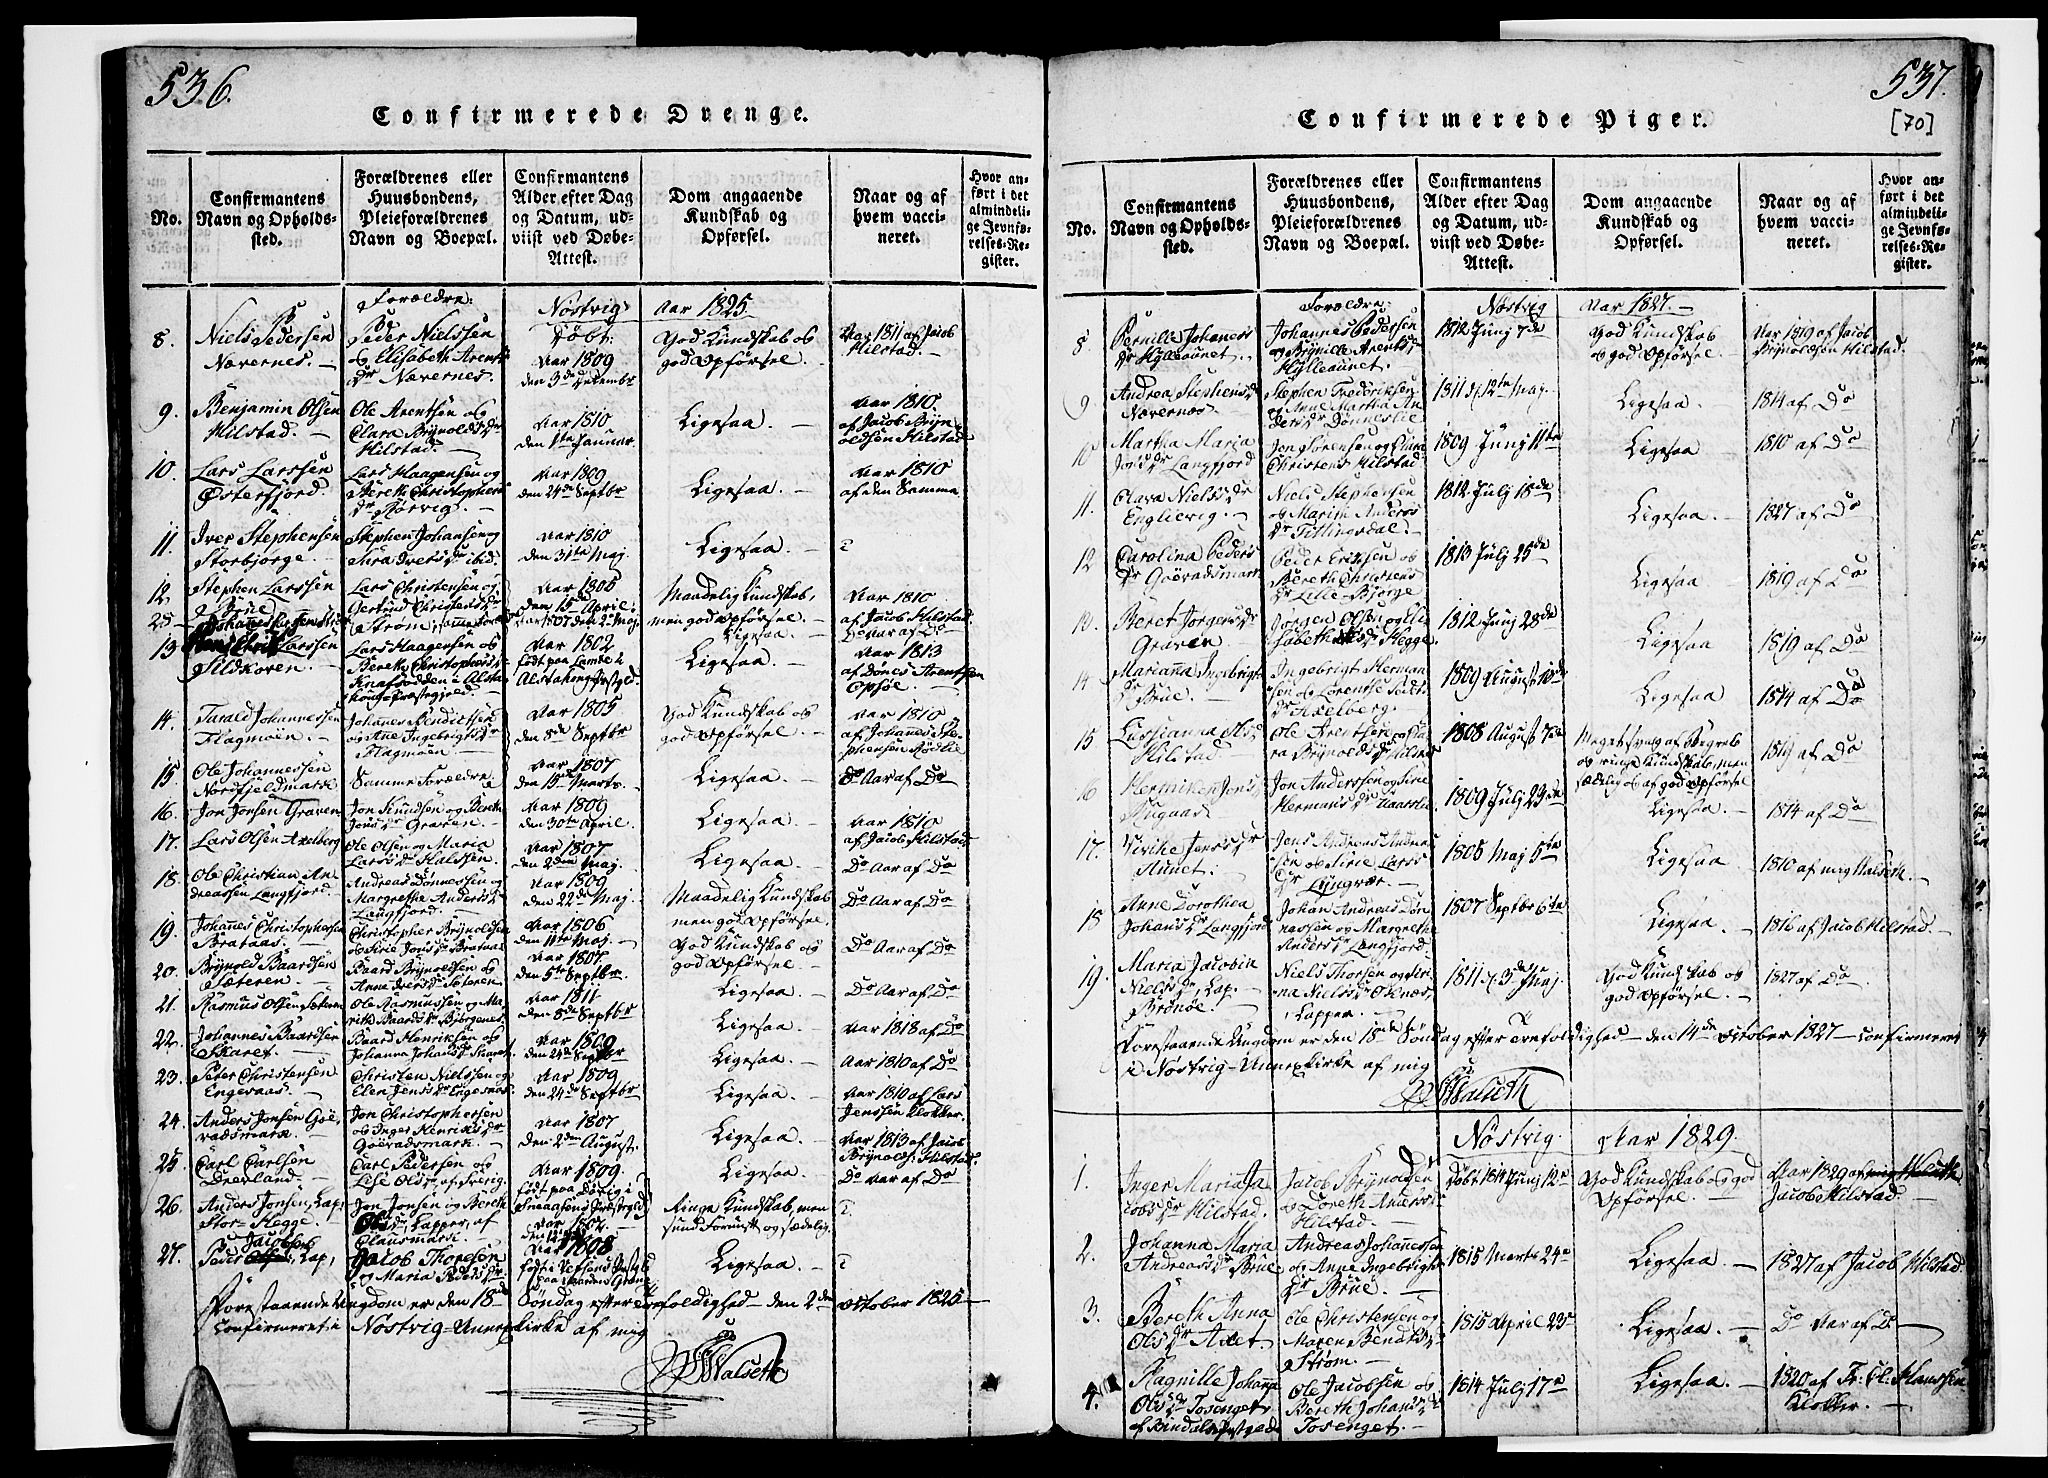 536.
Confirmerede Drenge.
No.
Confirmantens Navn og Opholdssted.
Forældrenes eller Huusbondens, Pleieforældrenes Navn og Boepæl.
Confirmantens Alder efter Dag og Datum, udviist ved Døbe-Attest.
Dom angaaende Kundskab og Opførsel.
Naar og af hvem vaccineret.
Hvor anført i det almindelige Jevnførelses-Register.
Forældre: Nøstvig Aar 1825.
8. Niels Pedersen Nævernes. Peder Nielssen og Elisabeth Arents Dr Nævernes. Døbt: Aar 1809 den 3de Decembr God Kundskab og god Opførsel. Aar 1811 af Jacob Hilstad.
9. Benjamin Olsen Hilstad. Ole Arentsen og Clara Brynolds Dr Hilstad. Aar 1810 den 1te Januar. Ligesaa. Aar 1810 af Jacob Brynoldsen Hilstad
10. Lars Larssen Østerfjord. Lars Haagensen og Bereth Christophers Dr Rørvig. Aar 1809 den 24de Septbr Ligesaa. Aar 1810 af den Samme
11. Iver Stephensen Storbjorge. Stephen Johansen og Sira Ivers Dr ibid. Aar 1810 den 31te Maj. Ligesaa.
12. Stephen Larssen Brüe Lars Christensen og Gertrud Christens Dr Strøm, Aar 1805 den 15de April: Maadelig Kundskab, men god Opførsel. Aar 1810 af Jacob Hilstad
Ligesaa
13 Larssen Sildkoven. Lars Haagensen og Bereth Christophers Dr Aar 1802 født paa Ligesaa. Aar 1813 af Dönes Arentsen Opsøe.
14. Tarald Johannessen Flagmoen. Johanes Bendictsen og Ane Ingebrigts Dr Flagmoen. Aar 1805 den 8de Septbr God Kundskab og god Opførsel. Aar 1810 af Johanes Stephensen
15. Ole Johannessen Nordfjeldmark Samme Forældre Aar 1807 den 15de Marts. Ligesaa. Do Aar af Do
16. Jon Jonsen Graven Jon Knudsen og Bereth Jons Dr Graven. Aar 1809 den 30te April. Ligesaa. Aar 1810 af Jacob Hilstad
17. Lars Olsen Axelberg Ole Olsen og Maria Lars Dr Halssen. Aar 1807 den 2den Maj. Ligesaa. Do Aar af Do
18. Ole Christian Andreassen Langfjord. Andreas Dönnessen og Margrethe Anders Dr Langfjord. Aar 1809 den 22de Maj. Maadelig Kundskab men god Opførsel. Do Aar af Do
19. Johanes Christophersen Brataas. Christopher Brynoldsen og Sirie Jons Dr Brataas Aar 1806 den 11te Maj. God Kundskab og god Opførsel. Do Aar af Do
20. Brynold Baardsen Sæteren. Baard Brynoldsen og Anne Ivers Dr Sæteren. Aar 1807 den 5te Septbr. Ligesaa. Do Aar af Do
21. Rasmus Olsen Ole Rasmussen og Marith Baards Dr Aar 1811 den 8de Septbr Ligesaa. Aar 1818 af Do
22. Johannes Baardsen Skaret. Baard Henriksen og Johanna Johans Dr Skaret. Aar 1809 den 24de Septbr Ligesaa. Aar 1810 af Do
23. Peter Christensen Engesaas. Christen Nielssen og Elen Jens Dr Engesaas Aar 1809 den 24de Septbr Ligesaa. Aar 1810 af Lars Jenssen Klokker.
24. Anders Jonsen Goevadsmark. Jon Christophersen og Inger Henriks Dr Goevadsmark. Aar 1807 den 2den August. Ligesaa. Aar 1813 af Jacob Brynolds: Hilstad.
25 Carl Carlsen Drevland. Carl Pedersen og Lise Ols Dr Aar 1809. Ligesaa. Do Aar af Do
26. Anders Jonsen, Lap, Stor-Hegge. Jon Jonsen og Bereth Lapper, af Clausmark. Aar 1804 Ringe Kundskab, men sund Fornuft og sædelig.
27. Peder Jacobsen, Lap, Jacob Thomesen og Maria Peders Dr Aar 1808 Ligesaa.
Forestaaende Ungdom er den 18de Søndag efter Trefoldighed – den 2den October 1825 –
confirmeret i Nøstvig-Annex Kirke af mig
Walseth
537.
[70]
Confirmerede Piger.
No.
Confirmantens Navn og Opholdssted.
Forældrenes eller Huusbondens, Pleieforældrenes Navn og Boepæl.
Confirmantens Alder efter Dag og Datum, udviist ved Døbe-Attest.
Dom angaaende Kundskab og Opførsel.
Naar og af hvem vaccineret.
Hvor anført i det almindelige Jevnførelses-Register.
Forældre: Nøstvig Aar 1827.
8 Pernille Johanes Dr Hylleaunet. Johannes Pedersen og Brynille Arents Dr Hylleaunet. 1812 Junj 7de God Kundskab og god Opførsel. Aar 1819 af Jacob Brynoldsen Hilstad.
9 Andrea Stephens Dr Nævernes. Stephen Fredriksen og Anne Martha Anders Dr Dønneslie 1811 12te Maj. Ligesaa. 1814 af Do
10 Martha Maria Jons Dr Langfjord Jon Sörensen og Clara Christens Hilstad. 1809 Junj 11te Ligesaa. 1810 af Do
11. Clara Niels Dr Englievig. Niels Stephensen og Marith Anders Dr Tettingdal. 1812 Julj 18de Ligesaa. 1827 af Do
12 Carolina Peders Dr Goevadsmark Peder Eriksen og Bereth Christens Dr Lille-Bjorge 1813 Julj 25de Ligesaa 1819 af Do
13. Beret Jorgens Dr Graven Jørgen Olsen og Elisabeth Dr Hegge. 1812 Junj 28de Ligesaa 1819 af Do
14 Marianna Ingebrigts Dr Brüe. Ingebrigt Hermansen og Lorentse Peders Dr Axelberg. 1809 August 10de Ligesaa 1814 af Do
15 Lussianna Ols Dr Hilstad. Ole Arentsen og Clara Brynolds Dr Hilstad 1808 August 7de Meget svag af Begreb og ringe Kundskab, men sædelig og af god Opførsel 1819 af Do
16 Hermiken Jons Dr Jon Anderssen og Sirie Hermans Dr 1809 Julj 23de Ligesaa. 1814 af Do
17. Vivike Jens Dr Aunet. Jens Andreas Andreassen og Sirie Lars Dr Lyngvær. 1805 Maj 5te Ligesaa. 1810 af mig Walseth.
18 Anne Dorothea Johans Dr Langfjord Johan Andreas Dönnessen og Margrethe Anders Dr Langfjord. 1807 Septbr 6te Ligesaa. 1816 af Jacob Hilstad.
19. Maria Jacobin Niels Dr, Lap. Brønøe. Niels Thorsen og Sirina Niels Dr Lapper. 1811 3de Junj. God Kundskab og god Opførsel. 1827 af Do
Forestaaende Ungdom er den 18de Søndag efter Trefoldighed – den 14de October 1827 – confirmeret
i Nøstvig-Annex Kirke af mig
Walseth
Nøstvig. Aar 1829.
1. Inger Maria Jacobs Dr Hilstad. Jacob Brynoldsen og Doreth Anders Dr Hilstad. Døbt 1814 Junj 12te God Kundskab og god Opførsel. Aar 1829 af mig Walseth Jacob Hilstad.
2. Johanna Maria Andreas Dr Brüe Andreas Johannessen og Anne Ingebrigts Dr Brüe. 1815 Marts 24de Ligesaa. 1827 af Jacob Hilstad.
3. Bereth Anna Ols Dr Axet. Ole Christensen og Maren Bendicts Dr Strøm. 1815 April 23de Ligesaa. Do Aar af Do
4. Ragnille Johanna Ols Dr Tosenget af Bindals Ole Jacobsen og Bereth Johans Dr Tosenget. 1814 Julj 17de Ligesaa. 1820 af Fr: Cl. Hanssen Klokker.